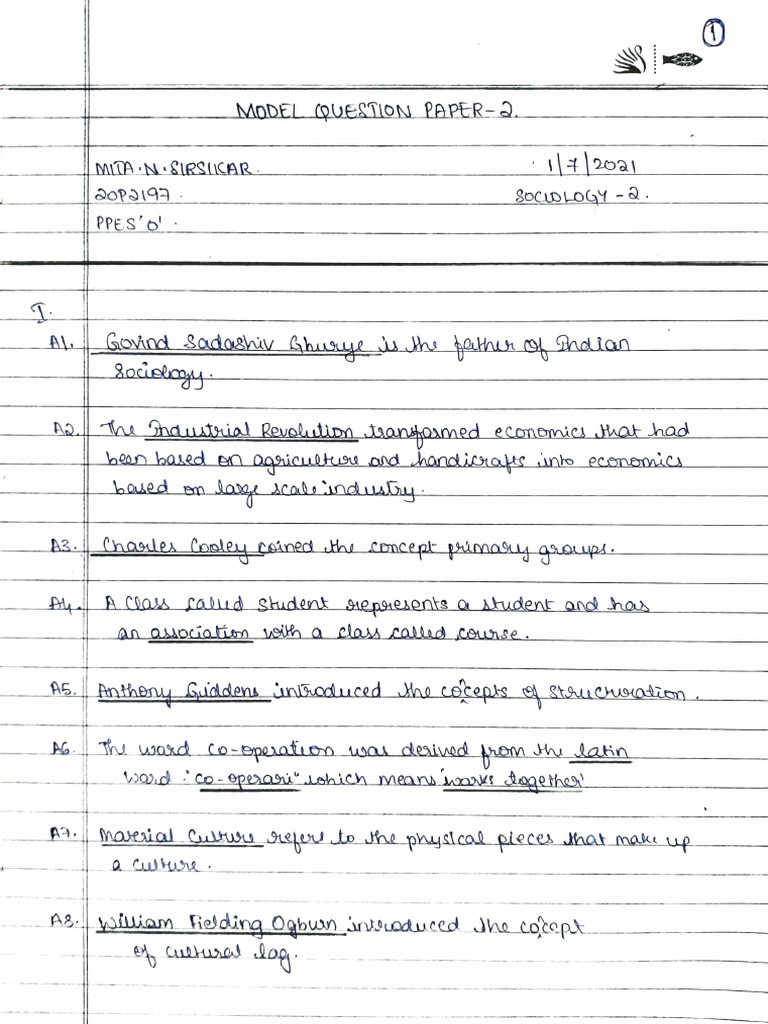 1
MODEL QUESTION PAPER-2.
MITA.N.SIRSIKAR. 1/7/2021
20P2197. SOCIOLOGY-2.
PPES'O'.
I.
A1. Govind Sadashiv Ghurye is the father of Indian
Sociology.
A2. The Industrial Revolution transformed economics that had
been based on agriculture and handicrafts into economics
based on large scale industry.
A3. Charles Cooley coined the concept primary groups.
A4. A class called Student represents a student and has
an association with a class called course.
A5. Anthony Giddens introduced the concepts of structuration.
A6. The word co-operation was derived from the latin
word 'co-operari" which means 'works together'
A7. Material Culture refers to the physical pieces that make up
a culture.
A8. William Fielding Ogburn introduced the concept
of cultural lag.